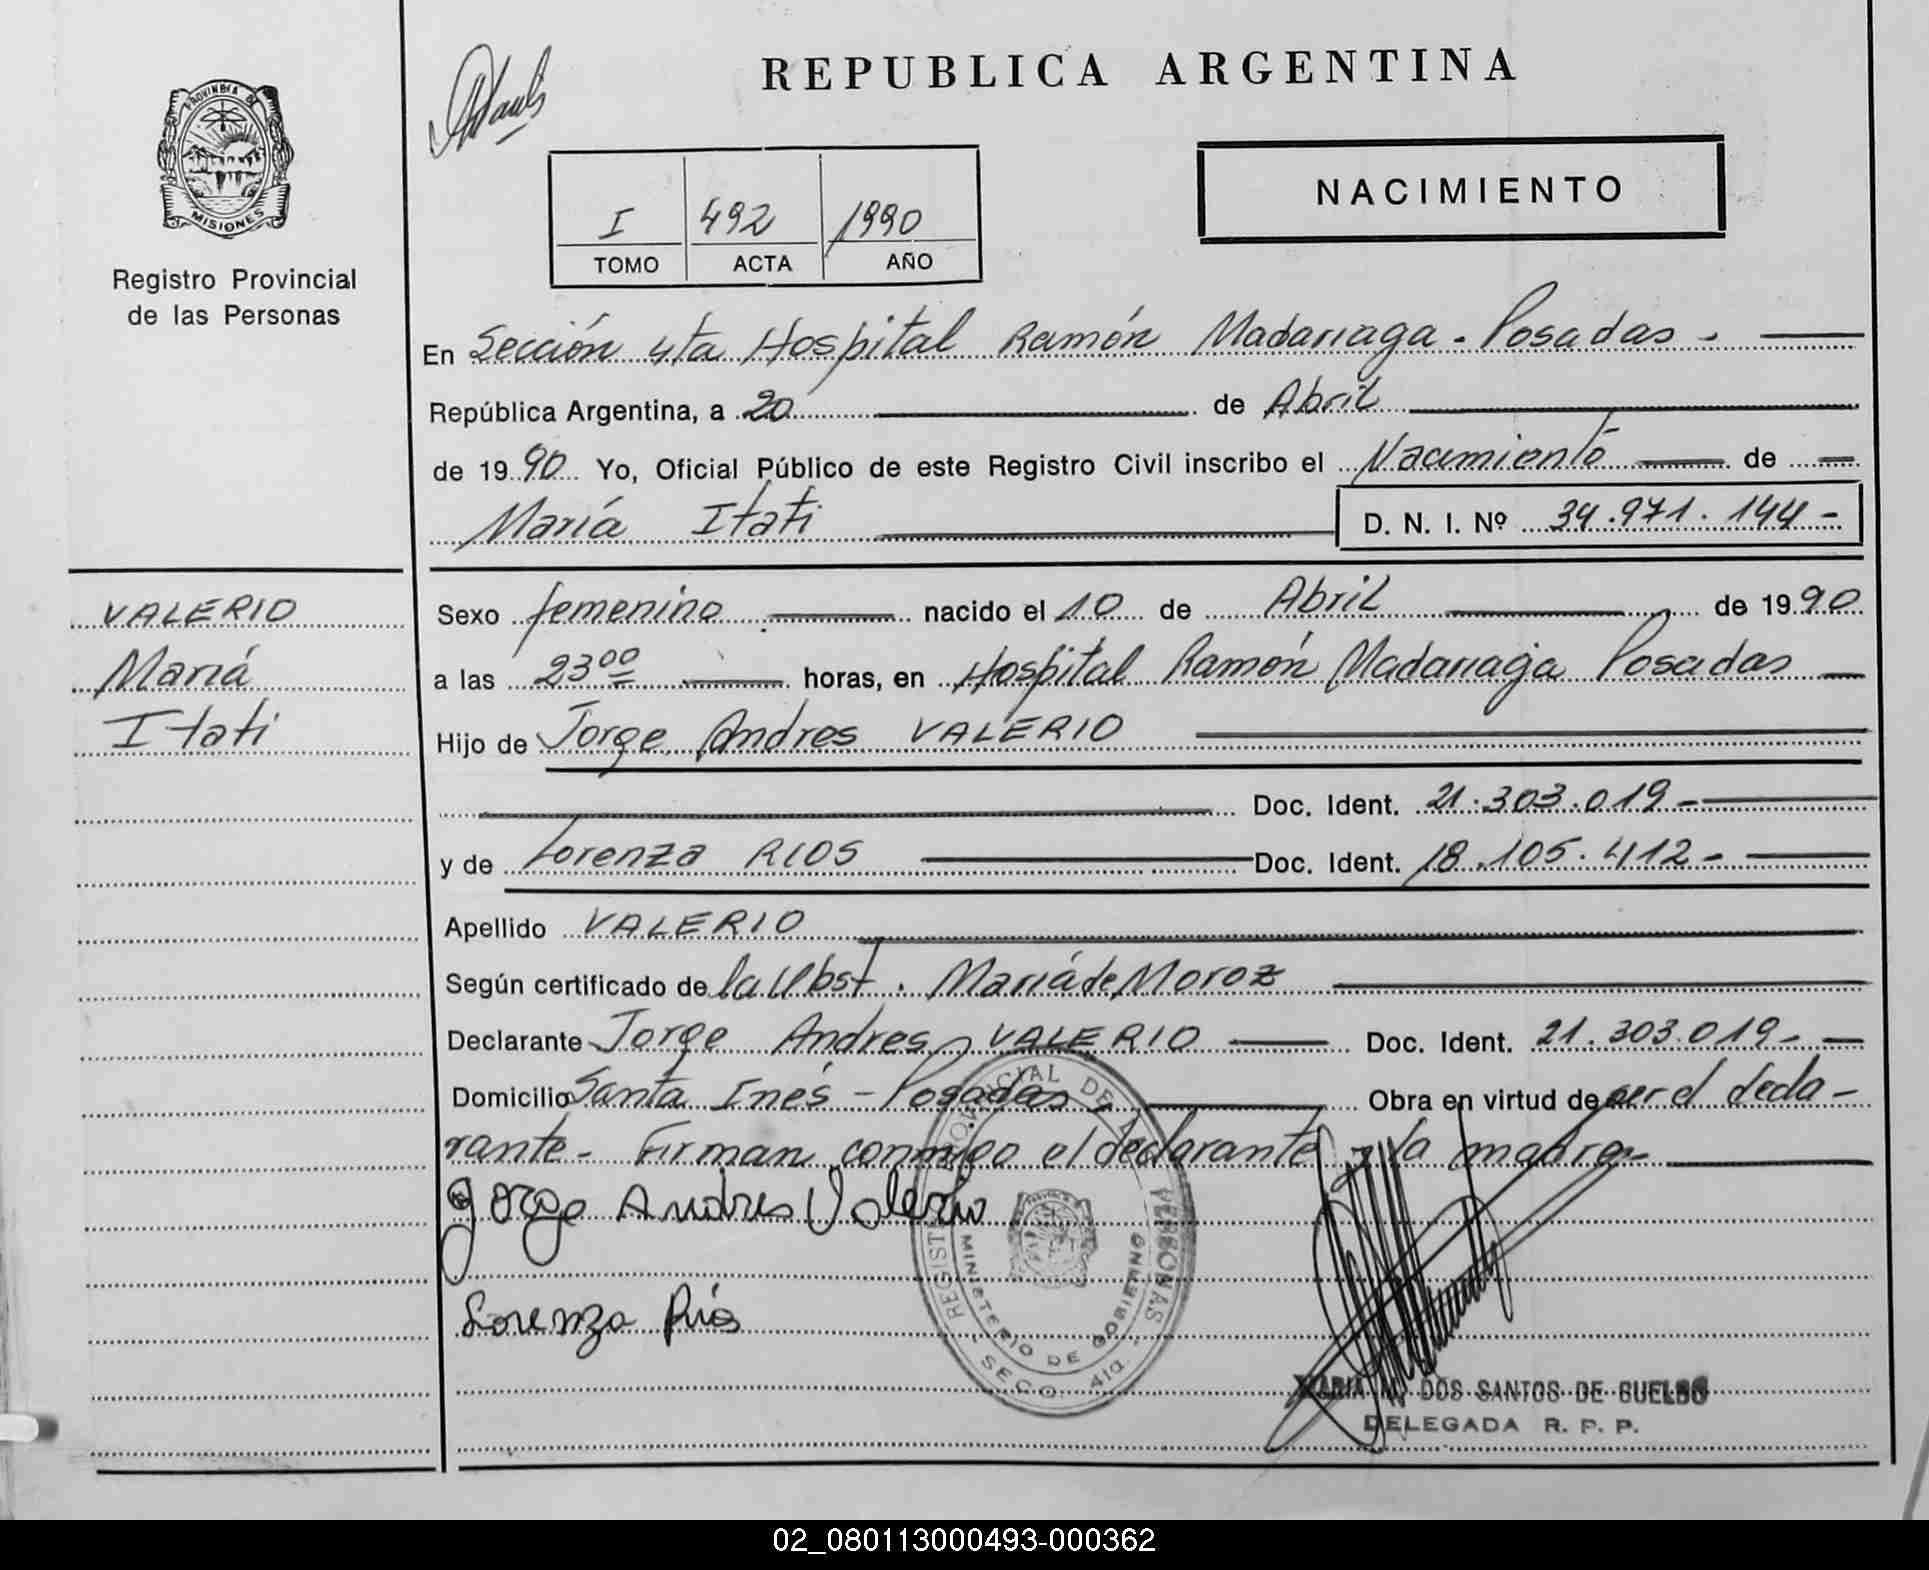 REPUBLICA ARGENTINA
PROVINCIA DE
MISIONES
Registro Provincial
de las Personas
NACIMIENTO
I 492 1990
TOMO ACTA AÑO
En Sección 4ta Hospital Ramón Madariaga - Posadas -
República Argentina, a 20 de Abril
de 1990 Yo, Oficial Público de este Registro Civil inscribo el Nacimiento de
María Itati D. N. I. Nº 34.971.144-
VALERIO
María
Itati
Sexo femenino nacido el 10 de Abril de 1990
a las 23⁰⁰ horas, en Hospital Ramón Madariaga Posadas
Hijo de Jorge Andres VALERIO
Doc. Ident. 21.303.019-
y de Lorenza RIOS Doc. Ident. 18.105.412-
Apellido VALERIO
Según certificado de la Obst. María de Moroz
Declarante Jorge Andres VALERIO Doc. Ident. 21.303.019-
Domicilio Santa Inés - Posadas Obra en virtud de ser el decla-
rante - Firman conmigo el declarante y la madre-
Jorge Andres Valerio
Lorenza Ríos
REGISTRO PROVINCIAL DE LAS PERSONAS
MINISTERIO DE GOBIERNO
- SECC. 4ta. -
MARIA M. DOS SANTOS DE
DELEGADA R. P. P.
02_080113000493-000362